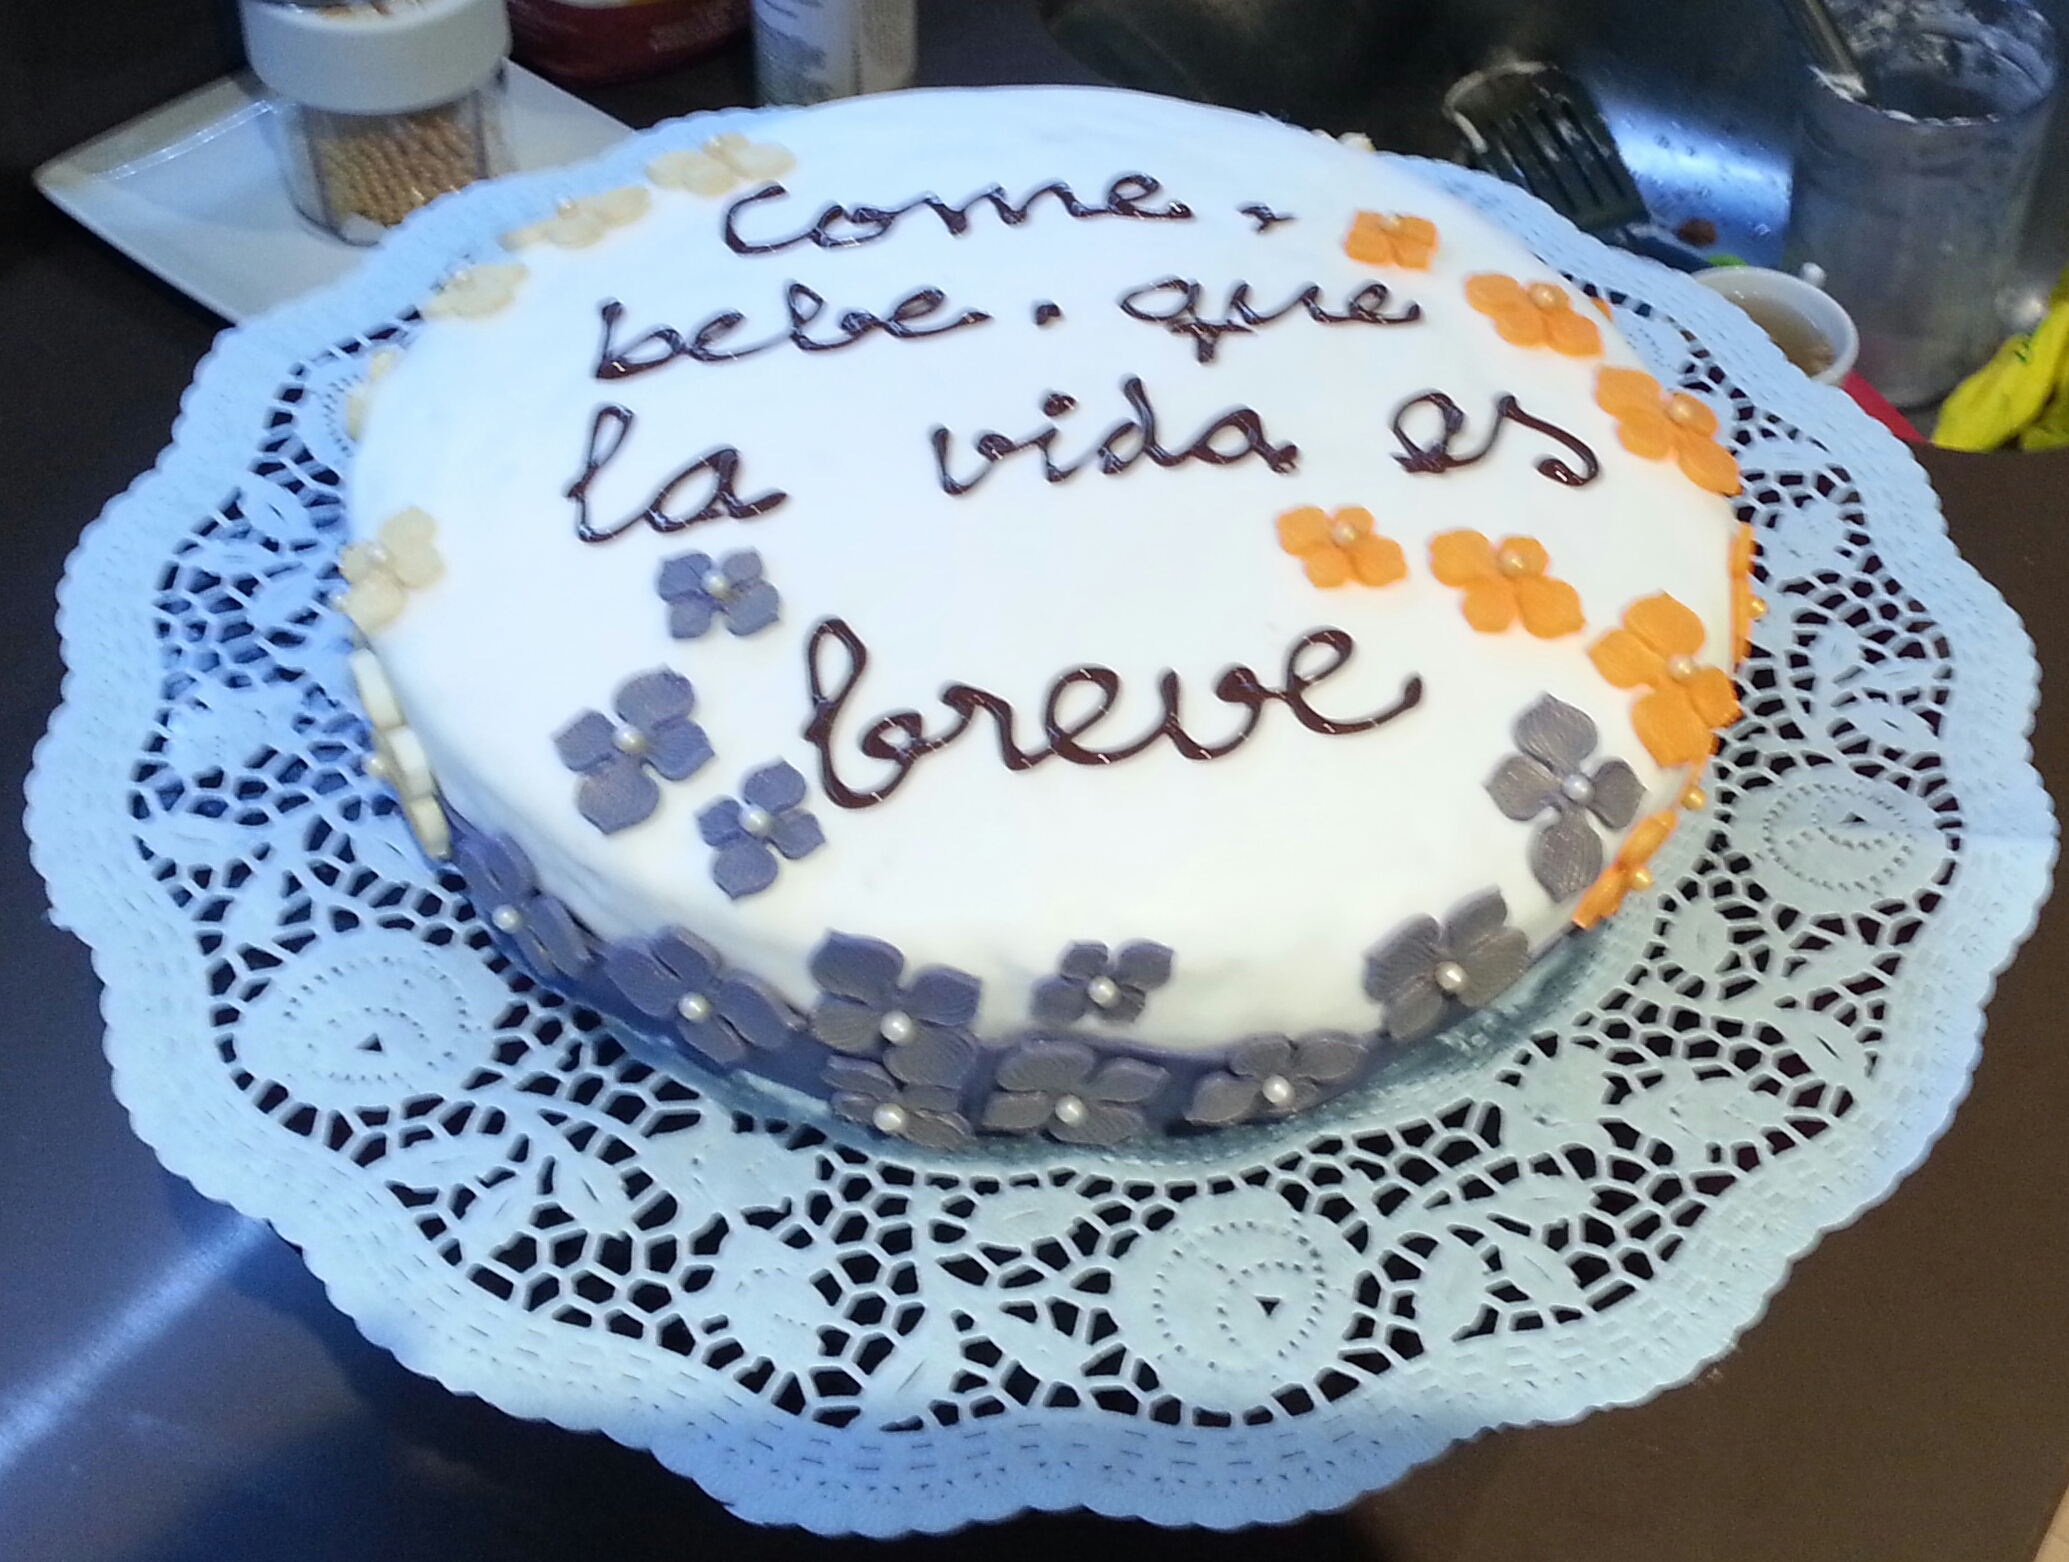 come,
bebe. que
la vida es
breve